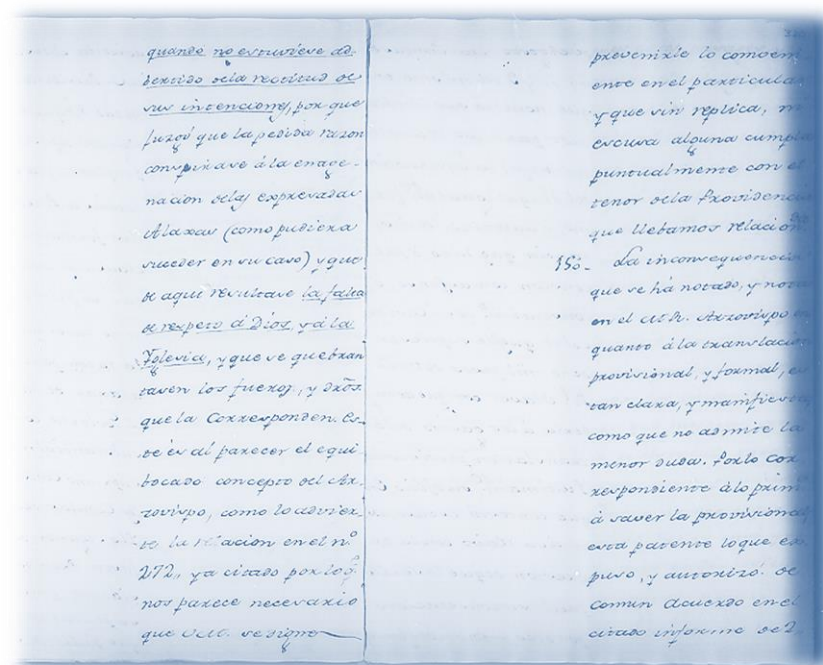 quando no estuviese ad-
bertido dela rectitud de
sus intenciones, por que
juzgó que la pedida razon
conspirase á la enage-
nacion delas expresadas
Alaxas (como pudiera
suceder en su caso) y que
de aqui resultase la falta
de respeto á Dios, y á la
Yglesia, y que se quebran
tasen los fueros, y dros
que la Corresponden. Es-
te es al parecer el equi-
bocado concepto del Ar-
zovispo, como lo advier-
te la relacion en el nº
272, ya citado por lo q.
nos parece necesario
que V.M. se digne
prevenirle lo combeni
ente en el particular
y que sin replica, ni
escusa alguna cumpla
puntualmente con el
tenor dela Providencia
que llebamos relacion.da
156- La inconsequencia
que se há notado, y nota
en el M.R. Arzovispo en
quanto á la translacion
provisional, y formal, es
tan clara, y manifiesta,
como que no admite la
menor duda. Por lo cor
respondiente á lo prim.o
á saver la provisional
está patente lo que ex
puso, y autorizó de
comun acuerdo en el
citado informe de 2,